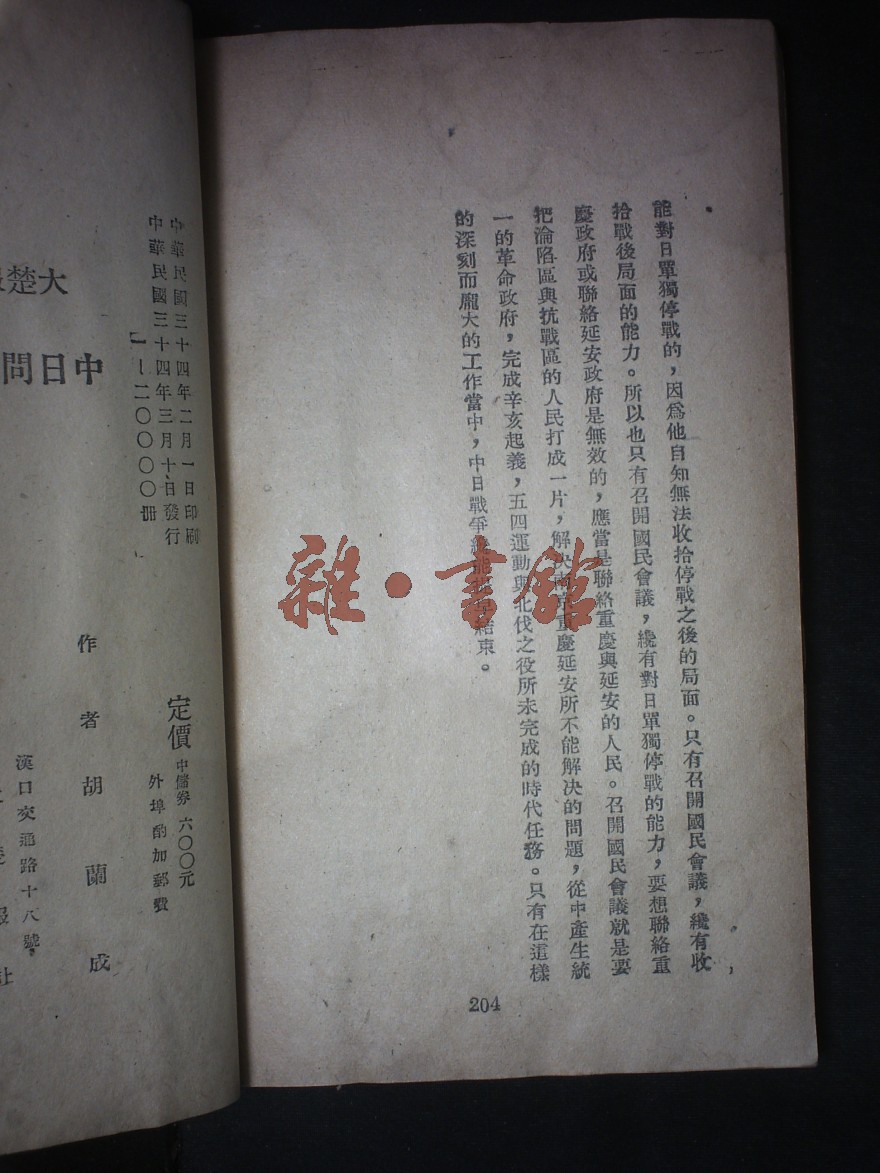 能對日單獨停戰的，因爲他自知無法收拾停戰之後的局面。只有召開國民會議，纔有收
拾戰後局面的能力。所以也只有召開國民會議，纔有對日單獨停戰的能力，要想聯絡重
慶政府或聯絡延安政府是無效的，應當是聯絡重慶與延安的人民。召開國民會議就是要
把淪陷區與抗戰區的人民打成一片，解決南京重慶延安所不能解決的問題，從中產生統
一的革命政府，完成辛亥起義，五四運動與北伐之役所未完成的時代任務。只有在這樣
的深刻而龐大的工作當中，中日戰爭纔能 結束。
204
雜·書館
中華民國三十四年二月一日印刷
中華民國三十四年三月十日發行
【一—二〇〇〇〇冊
定價 中儲券 六〇〇元
外埠酌加郵費
大楚
中日問
作者 胡蘭成
漢口交通路十八號
報社